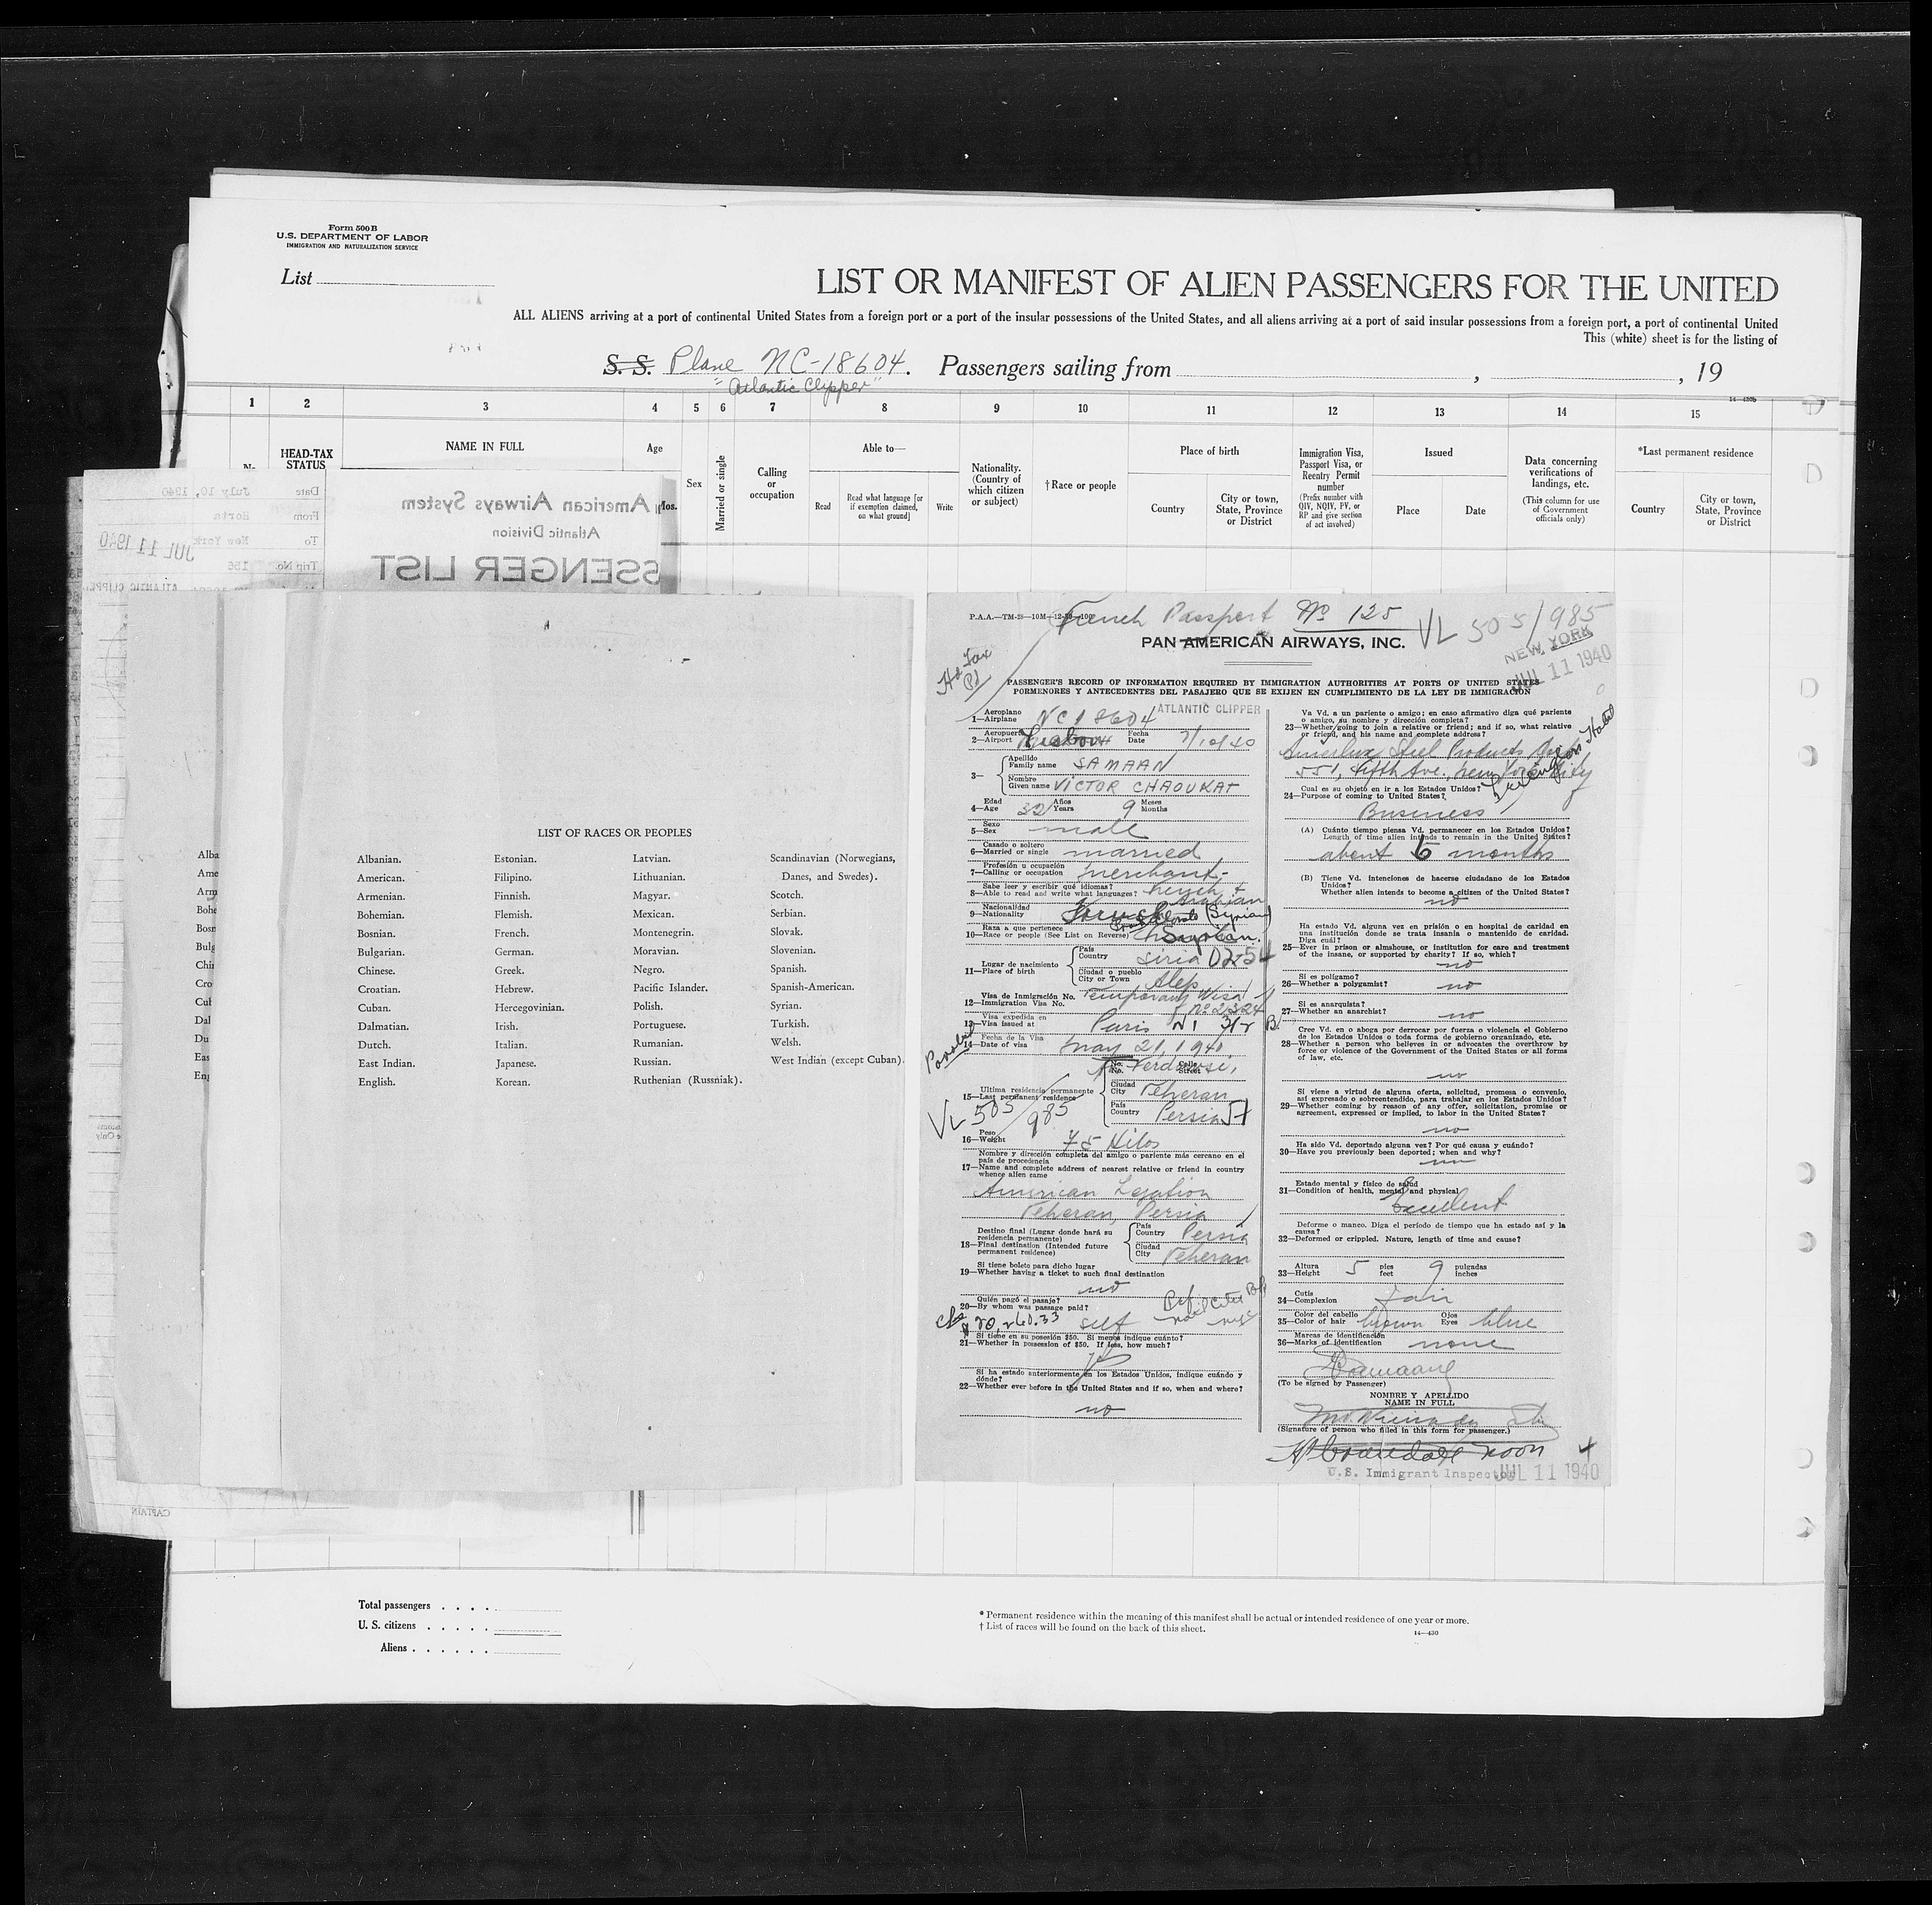 Form 500 B
U.S. DEPARTMENT OF LABOR
IMMIGRATION AND NATURALIZATION SERVICE
List
LIST OR MANIFEST OF ALIEN PASSENGERS FOR THE UNITED
ALL ALIENS arriving at a port of continental United States from a foreign port or a port of the insular possessions of the United States, and all aliens arriving at a port of said insular possessions from a foreign port, a port of continental United
This (white) sheet is for the listing of
S. S. Plane NC-18604. Passengers sailing from , , 19
"Atlantic Clipper"
1 2 3 4 5 6 7 8 9 10 11 12 13 14 15
HEAD-TAX STATUS
NAME IN FULL
Age
Mos.
Sex
Married or single
Calling or occupation
Able to—
Read
Read what language [or if exemption claimed, on what ground]
Write
Nationality. (Country of which citizen or subject)
† Race or people
Place of birth
Country
City or town, State, Province or District
Immigration Visa, Passport Visa, or Reentry Permit number
(Prefix number with QIV, NQIV, PV, or RP and give section of act involved)
Issued
Place
Date
Data concerning verifications of landings, etc.
(This column for use of Government officials only)
*Last permanent residence
Country
City or town, State, Province or District
American Airways System
Atlantic Division
SSENGER LIST
Date July 10, 1940
From Horta
To New York
JUL 11 1940
Trip No. 156
ATLANTIC CLIPPER
CAPTAIN
LIST OF RACES OR PEOPLES
Albanian. Estonian. Latvian. Scandinavian (Norwegians,
American. Filipino. Lithuanian. Danes, and Swedes).
Armenian. Finnish. Magyar. Scotch.
Bohemian. Flemish. Mexican. Serbian.
Bosnian. French. Montenegrin. Slovak.
Bulgarian. German. Moravian. Slovenian.
Chinese. Greek. Negro. Spanish.
Croatian. Hebrew. Pacific Islander. Spanish-American.
Cuban. Hercegovinian. Polish. Syrian.
Dalmatian. Irish. Portuguese. Turkish.
Dutch. Italian. Rumanian. Welsh.
East Indian. Japanese. Russian. West Indian (except Cuban).
English. Korean. Ruthenian (Russniak).
French Passport No 125
VL 505/985
PAN AMERICAN AIRWAYS, INC.
NEW YORK
JUL 11 1940
Hd Tax Pd
PASSENGER'S RECORD OF INFORMATION REQUIRED BY IMMIGRATION AUTHORITIES AT PORTS OF UNITED STATES
PORMENORES Y ANTECEDENTES DEL PASAJERO QUE SE EXIJEN EN CUMPLIMIENTO DE LA LEY DE IMMIGRACIÓN
Aeroplano
1—Airplane NC 18604 ATLANTIC CLIPPER
Aeropuerto
2—Airport Lisbon Fecha Date 7/10/40
3— Apellido Family name SAMAAN
Nombre Given name VICTOR CHAOUKAT
Edad
4—Age 32 Años Years 9 Meses Months
Sexo
5—Sex male
Casado o soltero
6—Married or single married
Profesión u ocupación
7—Calling or occupation merchant
Sabe leer y escribir qué idiomas?
8—Able to read and write what languages? french + Arabian
Nacionalidad
9—Nationality (Syrian)
Raza a que pertenece
10—Race or people (See List on Reverse) Syrian.
Lugar de nacimiento
11—Place of birth
País Country Siria
Ciudad o pueblo City or Town Alep
Visa de Inmigración No.
12—Immigration Visa No. Temporary Visa No 2324
Visa expedida en
13—Visa issued at Paris
Fecha de la Visa
14—Date of visa May 21, 1940
Ultima residencia permanente
15—Last permanent residence
No. Calle Street
Ciudad City Teheran
País Country Persia
VL 505/985
Peso
16—Weight 75 Kilos
Nombre y dirección completa del amigo o pariente más cercano en el país de procedencia
17—Name and complete address of nearest relative or friend in country whence alien came
American Legation
Teheran, Persia
Destino final (Lugar donde hará su residencia permanente)
18—Final destination (Intended future permanent residence)
País Country Persia
Ciudad City Teheran
Si tiene boleto para dicho lugar
19—Whether having a ticket to such final destination
no
Quién pagó el pasaje?
20—By whom was passage paid?
self
Si tiene en su posesión $50. Si menos indique cuánto?
21—Whether in possession of $50. If less, how much?
Si ha estado anteriormente en los Estados Unidos, indique cuándo y dónde?
22—Whether ever before in the United States and if so, when and where?
no
Va Vd. a un pariente o amigo; en caso afirmativo diga qué pariente o amigo, su nombre y dirección completa?
23—Whether going to join a relative or friend; and if so, what relative or friend, and his name and complete address?
Amerlux Steel Products
551, Fifth Ave., New York City
Lexington Hotel
Cual es su objeto en ir a los Estados Unidos?
24—Purpose of coming to United States?
Business
(A) Cuánto tiempo piensa Vd. permanecer en los Estados Unidos?
Length of time alien intends to remain in the United States?
about 6 months
(B) Tiene Vd. intenciones de hacerse ciudadano de los Estados Unidos?
Whether alien intends to become a citizen of the United States?
no
Ha estado Vd. alguna vez en prisión o en hospital de caridad en una institución donde se trata insania o mantenido de caridad. Diga cuál?
25—Ever in prison or almshouse, or institution for care and treatment of the insane, or supported by charity? If so, which?
no
Si es polígamo?
26—Whether a polygamist? no
Si es anarquista?
27—Whether an anarchist? no
Cree Vd. en o aboga por derrocar por fuerza o violencia el Gobierno de los Estados Unidos o toda forma de gobierno organizado, etc.
28—Whether a person who believes in or advocates the overthrow by force or violence of the Government of the United States or all forms of law, etc.
no
Si viene a virtud de alguna oferta, solicitud, promesa o convenio, así expresado o sobreentendido, para trabajar en los Estados Unidos?
29—Whether coming by reason of any offer, solicitation, promise or agreement, expressed or implied, to labor in the United States?
no
Ha sido Vd. deportado alguna vez? Por qué causa y cuándo?
30—Have you previously been deported; when and why?
no
Estado mental y físico de salud
31—Condition of health, mental and physical
Excellent
Deforme o manco. Diga el período de tiempo que ha estado así y la causa?
32—Deformed or crippled. Nature, length of time and cause?
Altura
33—Height 5 pies feet 9 pulgadas inches
Cutis
34—Complexion fair
Color del cabello
35—Color of hair brown Ojos Eyes blue
Marcas de identificación
36—Marks of identification none
(To be signed by Passenger)
NOMBRE Y APELLIDO
NAME IN FULL
(Signature of person who filled in this form for passenger.)
U.S. Immigrant Inspector JUL 11 1940
Total passengers
U. S. citizens
Aliens
* Permanent residence within the meaning of this manifest shall be actual or intended residence of one year or more.
† List of races will be found on the back of this sheet.
14—430